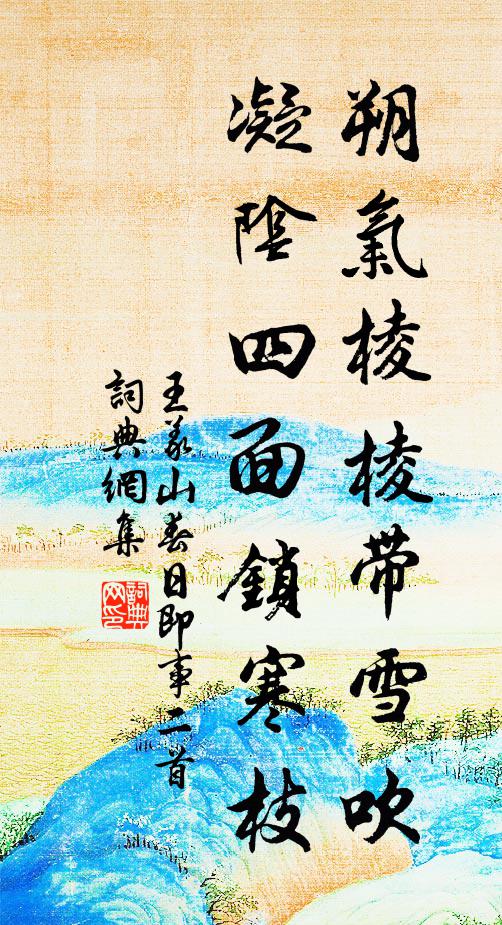 朔氣棱棱帶雪吹
凝陰四面鎖寒枝
王義山春日即事二首
詞典網集
詞典網印